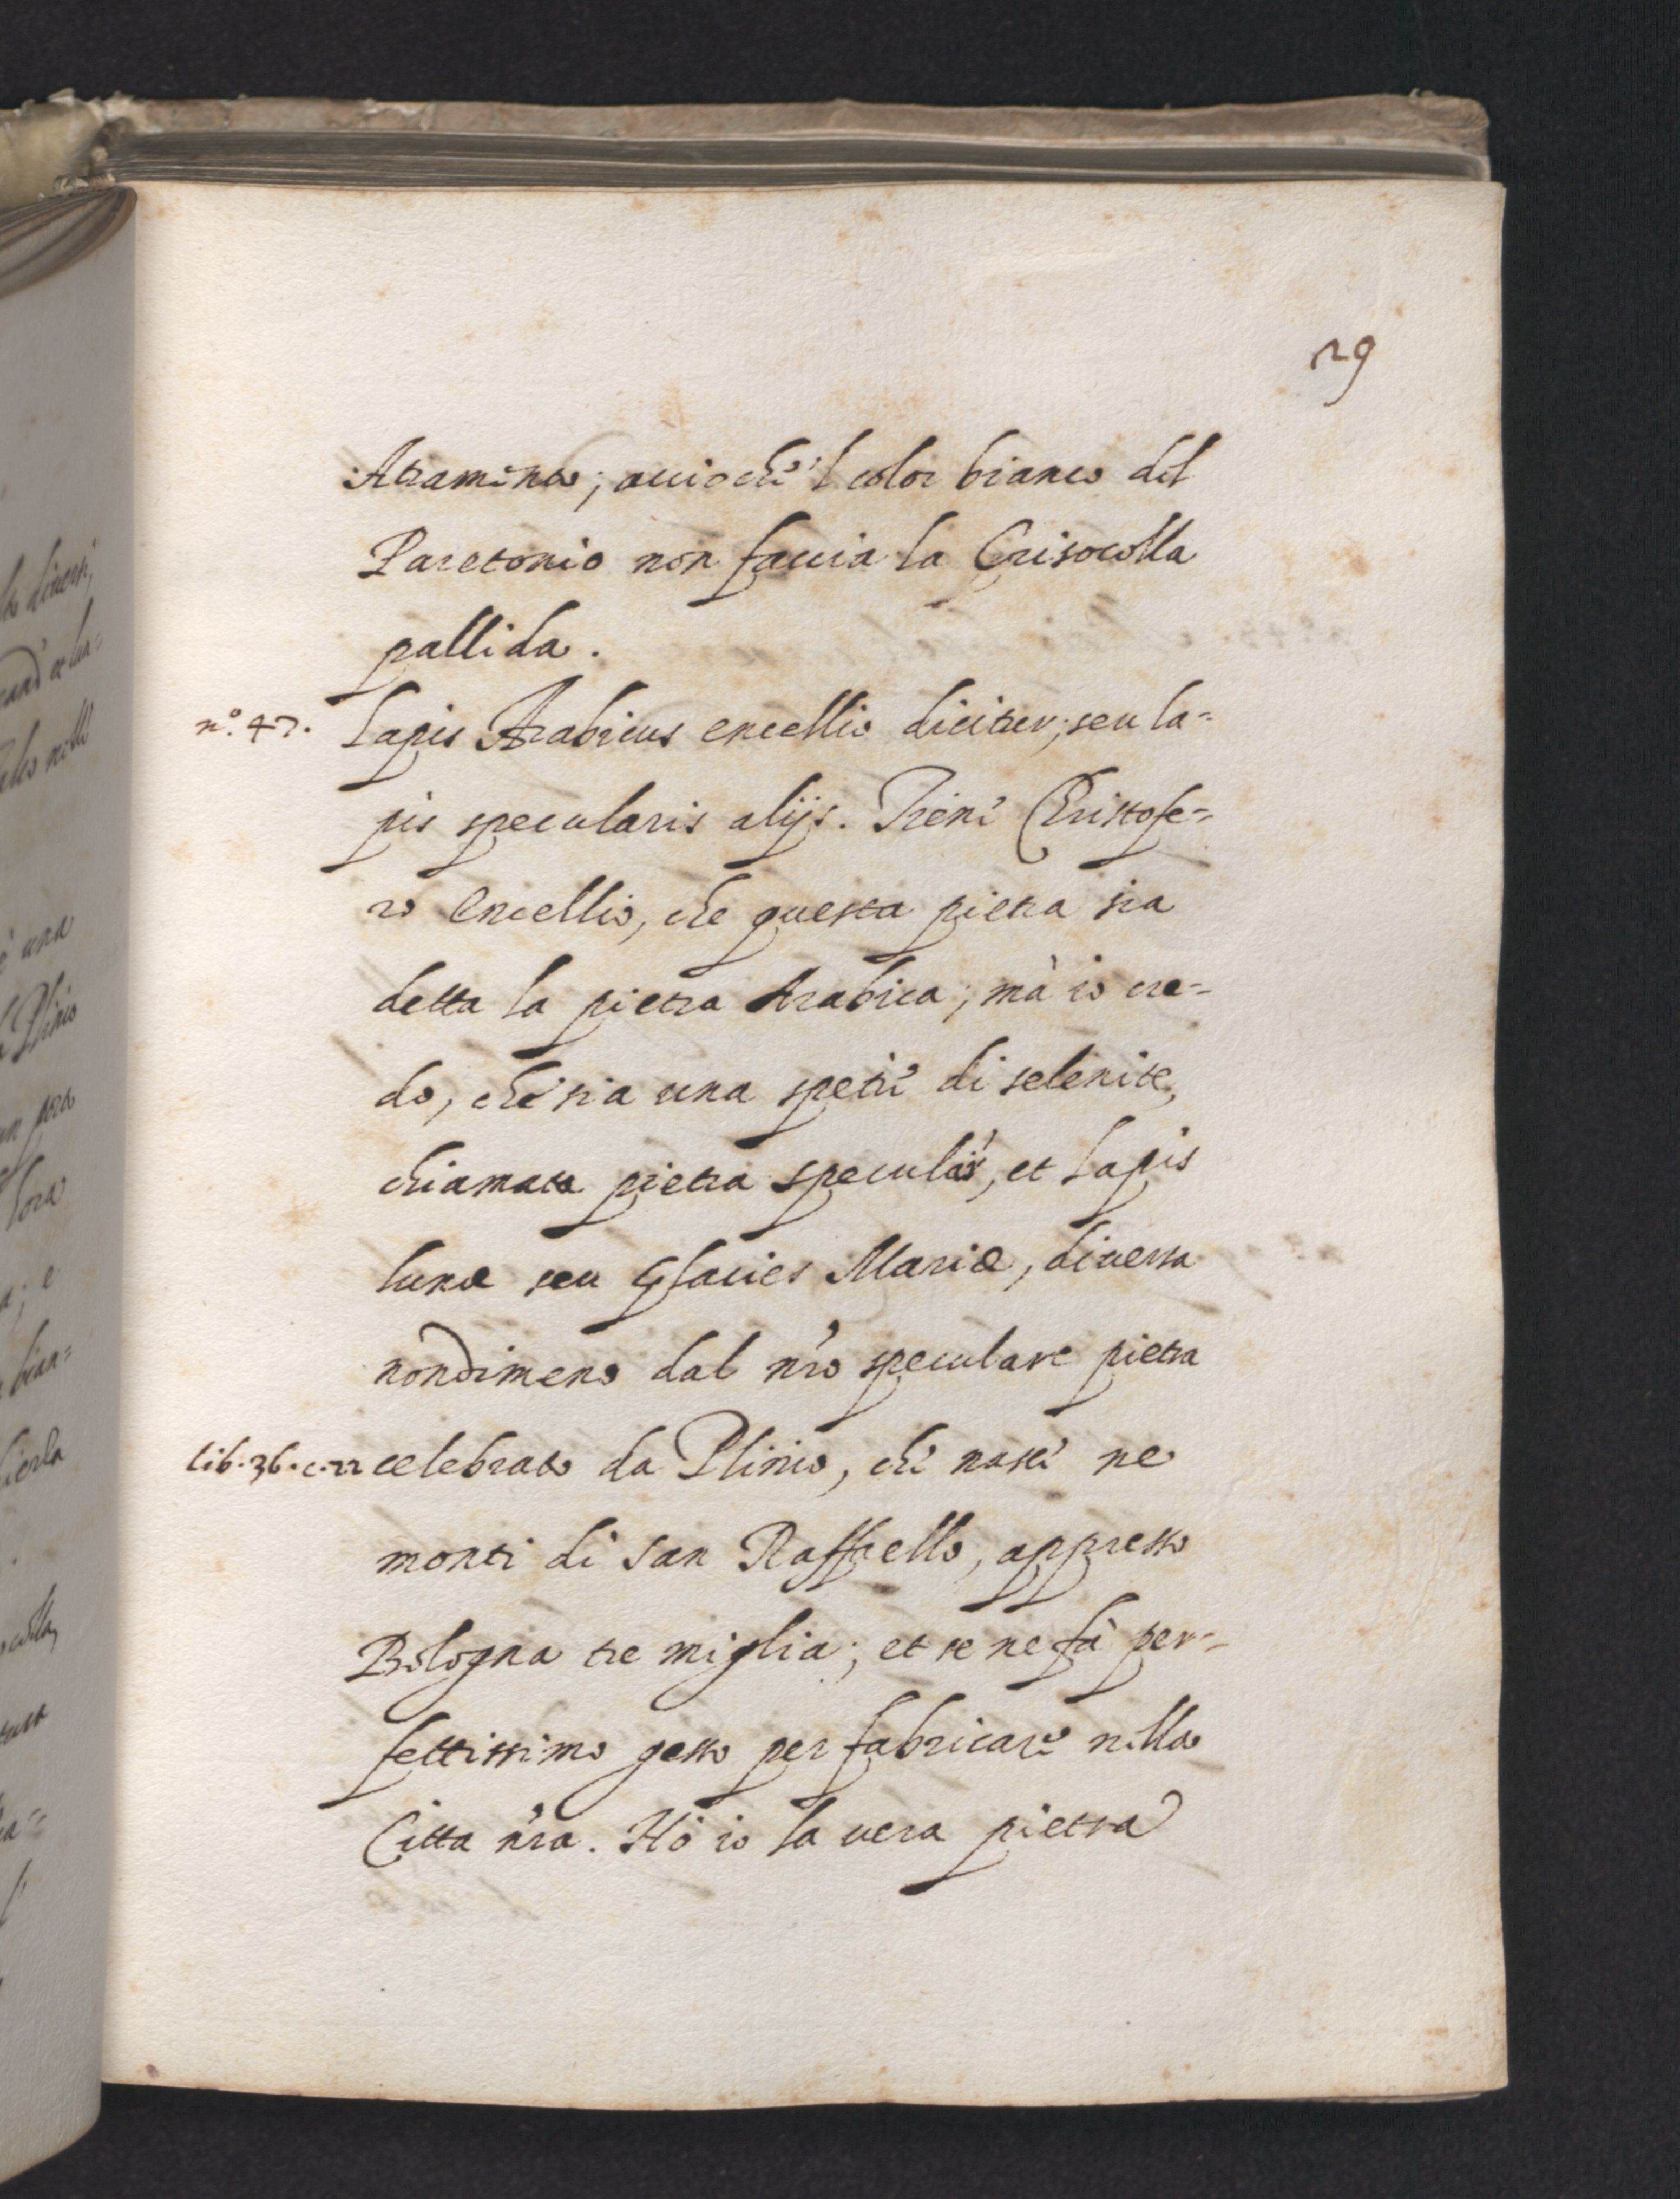 29
Atramento; accioche'l color bianco del
Paretonio non faccia la Crisocolla
pallida.
n.o 47. Lapis Arabicus encellio dicitur; seu la=
pis specularis alijs. Tiene Christofe=
ro Encellio, che questa pietra sia
detta la pietra Arabica; mà io cre=
do, che sia una spetie di selenite,
chiamata pietra specular, et Lapis
lunæ seu Glacies Mariæ, diuersa
nondimeno dal nro speculare pietra
lib. 36. c. 22 celebrato da Plinio, che nasce ne
monti di San Raffaello, appresso
Bologna tre miglia; et se ne fà per=
fettissimo gesso per fabricare nella
Citta nra. Hò io la uera pietra